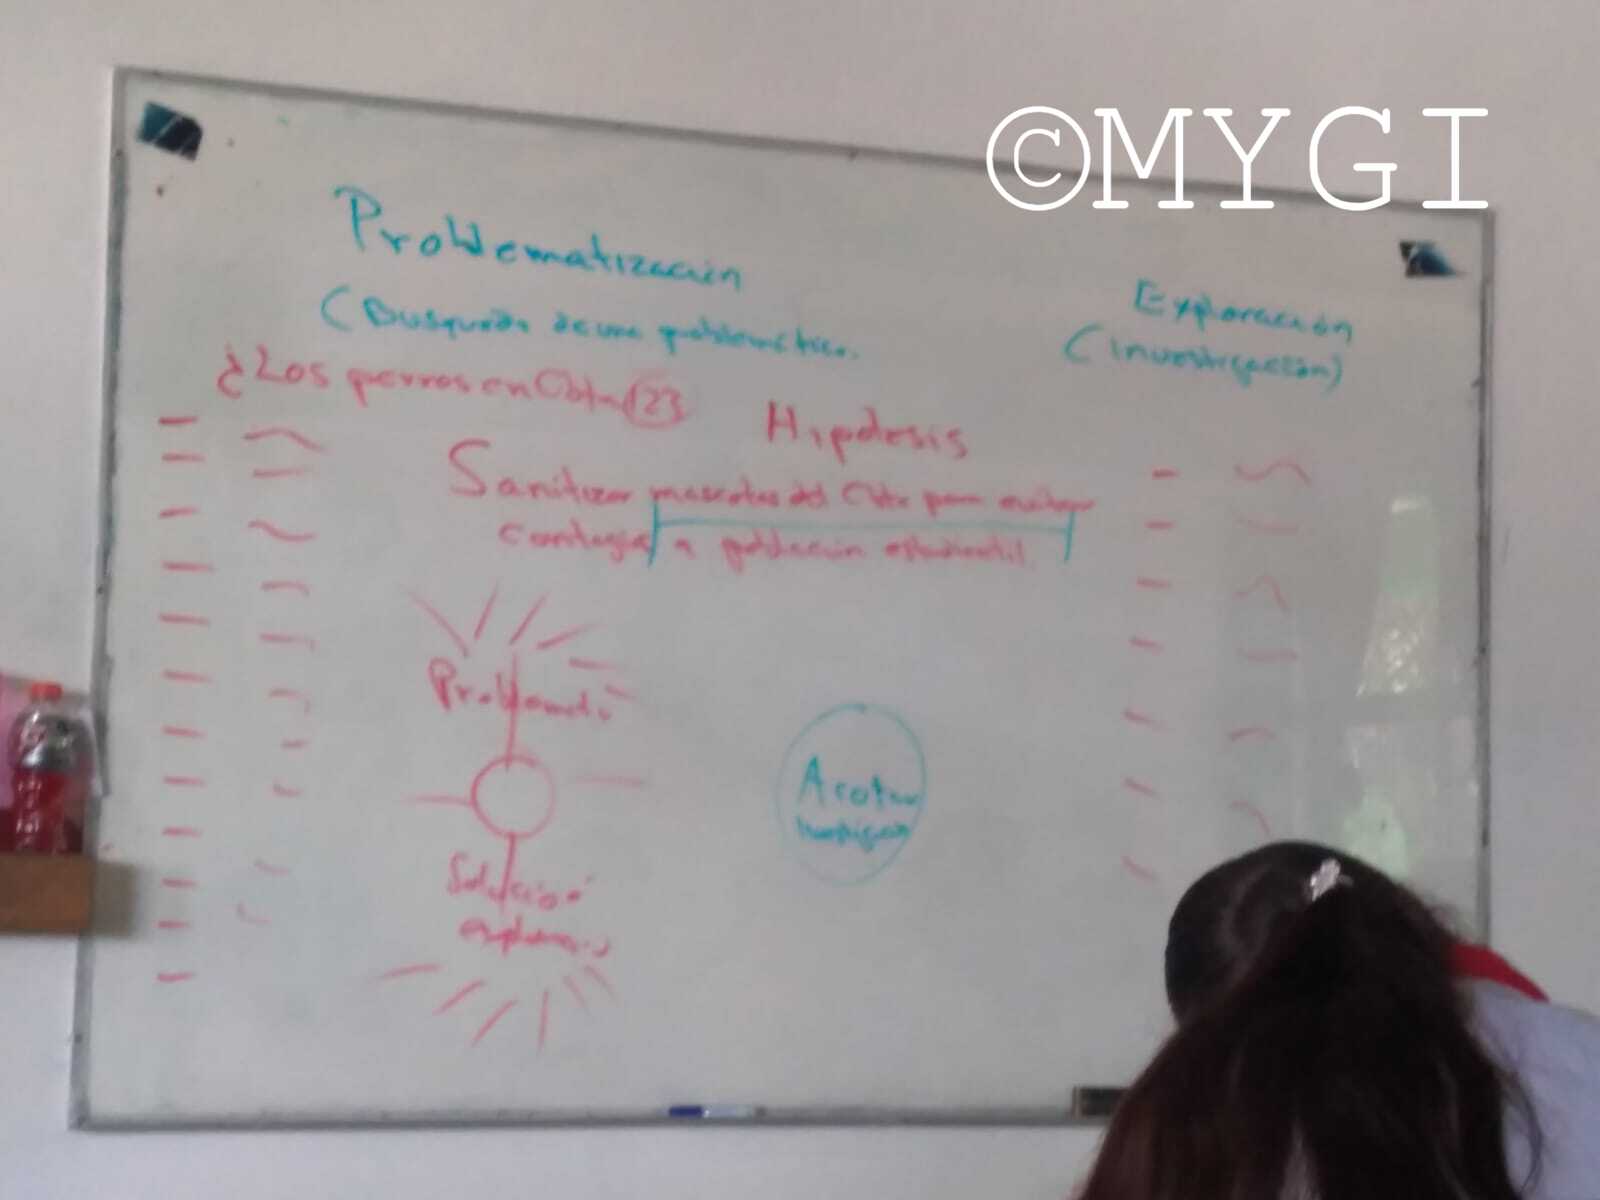 ©MYGI
Problematización
(Busqueda de una problemática.
Exploración
(investigación)
¿Los perros en Cbta 123
Hipótesis
Sanitizar mascotas del Cbta para evitar
contagio a población estudiantil.
Problema
Acotar
Solución